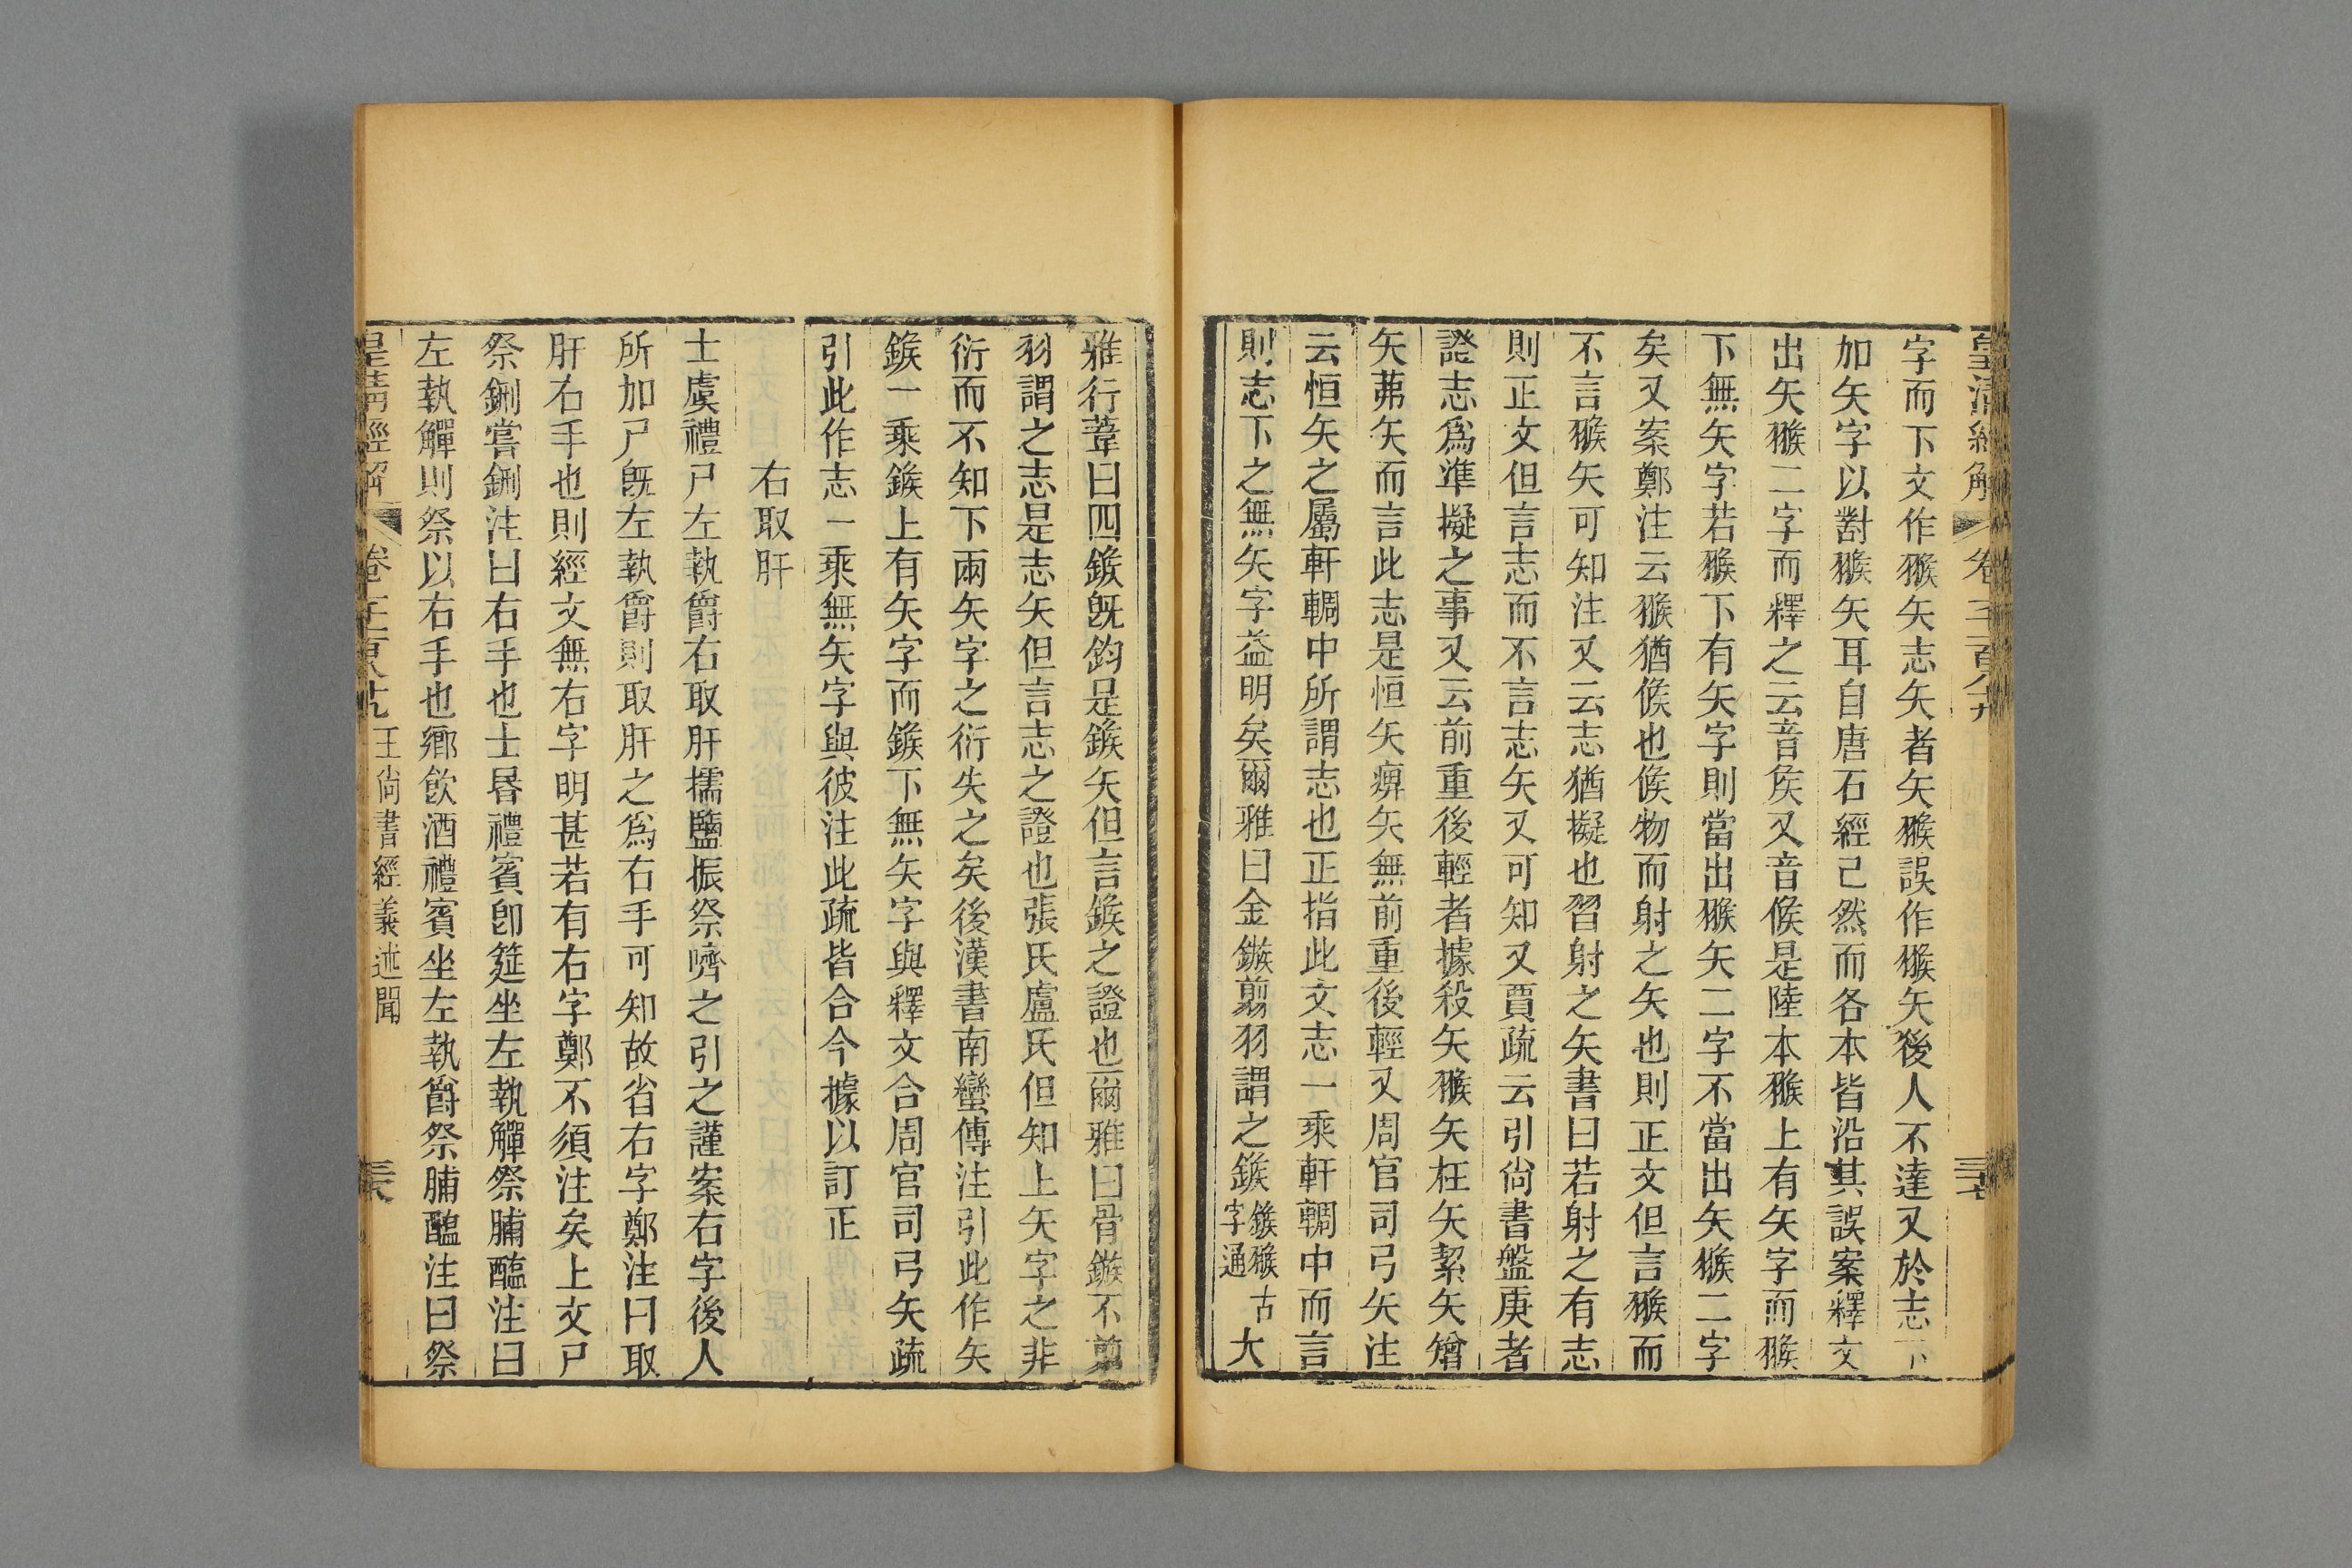 皇清經解 卷千二百八十九 三十七
字而下文作翭矢志矢者矢翭誤作翭矢後人不達又於志下
加矢字以對翭矢耳自唐石經已然而各本皆沿其誤案釋文
出矢翭二字而釋之云音矦又音候是陸本翭上有矢字而翭
下無矢字若翭下有矢字則當出翭矢二字不當出矢翭二字
矣又案鄭注云翭猶候也候物而射之矢也則正文但言翭而
不言翭矢可知注又云志猶擬也習射之矢書曰若射之有志
則正文但言志而不言志矢又可知又賈疏云引尙書盤庚者
證志爲準擬之事又云前重後輕者據殺矢翭矢枉矢絜矢矰
矢茀矢而言此志是恒矢痹矢無前重後輕又周官司弓矢注
云恒矢之屬軒輖中所謂志也正指此文志一乘軒輖中而言
則志下之無矢字益明矣爾雅曰金鏃翦羽謂之鍭鍭翭古字通大
雅行葦曰四鍭旣鈞是鍭矢但言鍭之證也爾雅曰骨鏃不翦
羽謂之志是志矢但言志之證也張氏盧氏但知上矢字之非
衍而不知下兩矢字之衍失之矣後漢書南蠻傳注引此作矢
鍭一乘鍭上有矢字而鍭下無矢字與釋文合周官司弓矢疏
引此作志一乘無矢字與彼注此疏皆合今據以訂正
右取肝
士虞禮尸左執爵右取肝擩鹽振祭嚌之引之謹案右字後人
所加尸旣左執爵則取肝之爲右手可知故省右字鄭注曰取
肝右手也則經文無右字明甚若有右字鄭不須注矣上文尸
祭鉶嘗鉶注曰右手也士昬禮賓卽筵坐左執觶祭脯醢注曰
左執觶則祭以右手也鄉飮酒禮賓坐左執爵祭脯醢注曰祭
皇清經解 卷千二百八十九 王尙書經義述聞 三十八